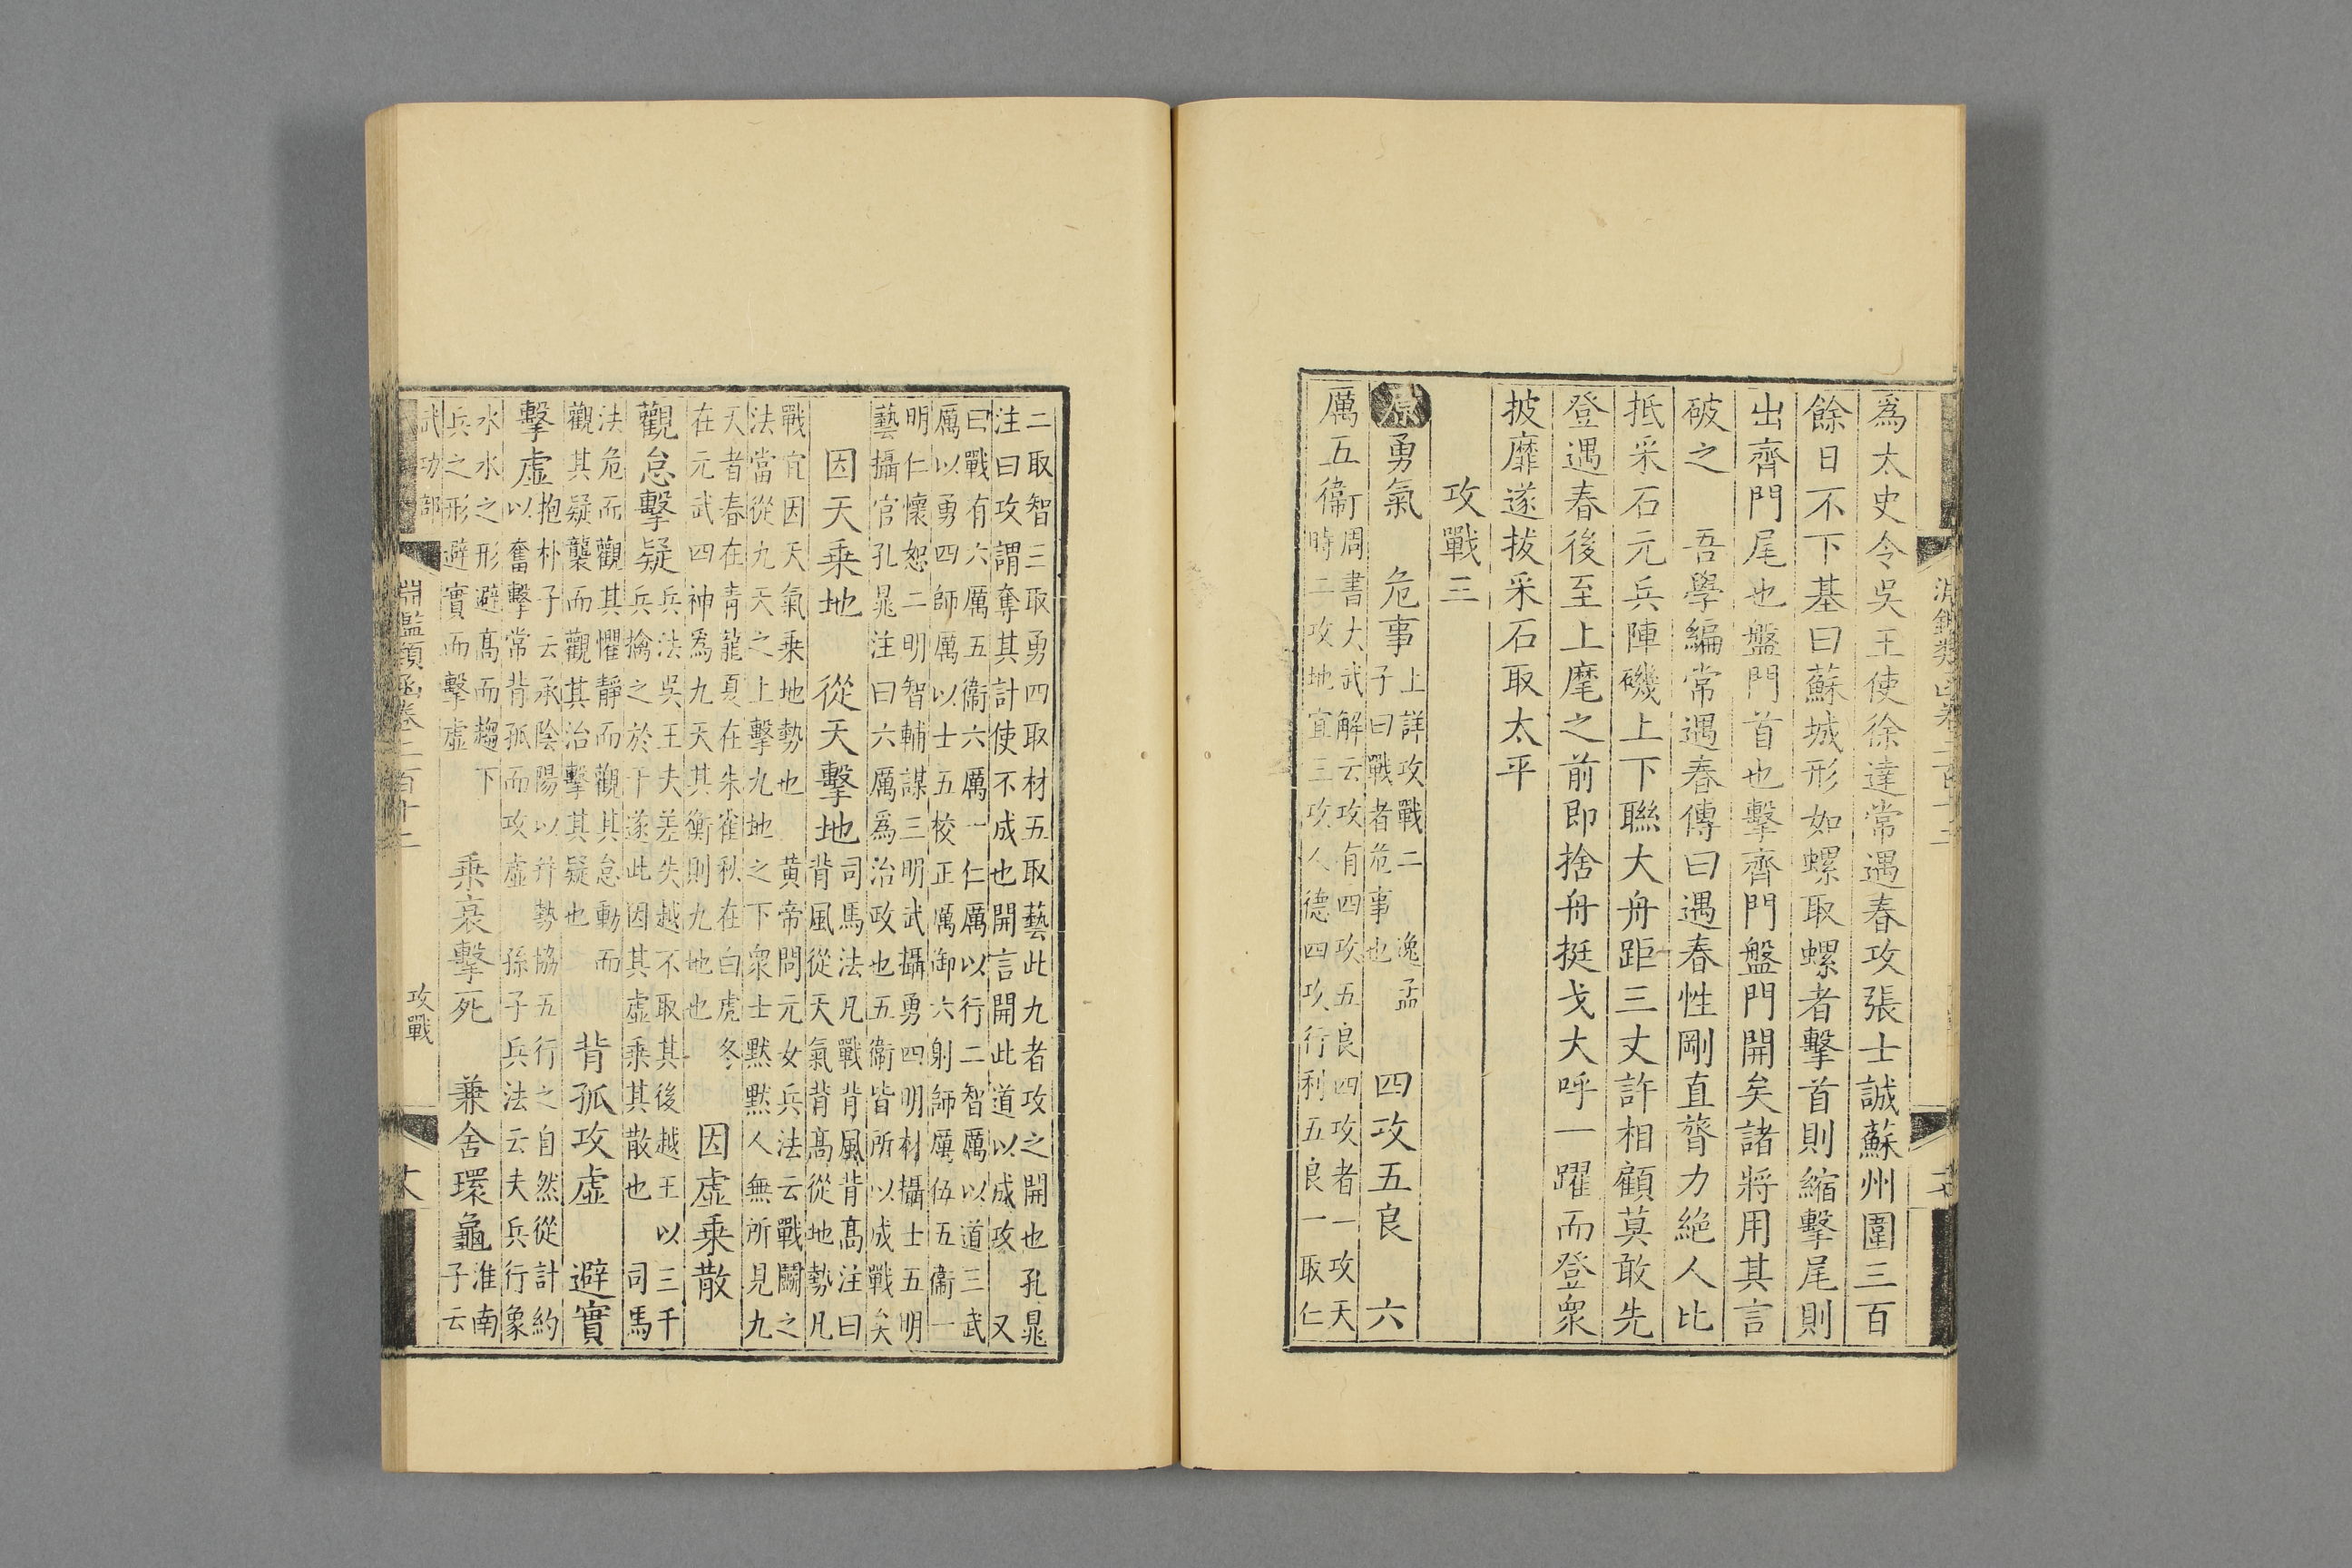 爲太史令吳王使徐達常遇春攻張士誠蘇州圍三百
餘日不下基曰蘇城形如螺取螺者擊首則縮擊尾則
出齊門尾也盤門首也擊齊門盤門開矣諸將用其言
破之　吾學編常遇春傳曰遇春性剛直膂力絶人比
抵采石元兵陣磯上下聯大舟距三丈許相顧莫敢先
登遇春後至上麾之前即捨舟挺戈大呼一躍而登衆
披靡遂拔采石取太平
攻戰三
原勇氣　危事上詳攻戰二　逸孟子曰戰者危事也　四攻五良　六
厲五衞周書大武解云攻有四攻五良四攻者一攻天時二攻地宜三攻人德四攻行利五良一取仁
二取智三取勇四取材五取藝此九者攻之開也孔晁
注曰攻謂奪其計使不成也開言開此道以成攻　又
曰戰有六厲五衞六厲一仁厲以行二智厲以道三武
厲以勇四師厲以士五校正厲御六射師厲伍五衞一
明仁懷恕二明智輔謀三明武攝勇四明材攝士五明
藝攝官孔晁注曰六厲爲治政也五衞皆所以成戰矣
因天乗地　從天擊地司馬法凡戰背風背髙注曰背風從天氣背髙從地勢凡
戰宜因天氣乗地勢也　黃帝問元女兵法云戰鬭之
法當從九天之上擊九地之下衆士默默人無所見九
天者春在青龍夏在朱雀秋在白虎冬
在元武四神爲九天其衝則九地也　因虛乗散
觀怠擊疑兵法吳王夫差失越不取其後越王以三千兵擒之於干遂此因其虛乗其散也　司馬
法危而觀其懼靜而觀其怠動而
觀其疑襲而觀其治擊其疑也　背孤攻虛　避實
擊虛抱朴子云承陰陽以并勢協五行之自然從計約以奮擊常背孤而攻虛　孫子兵法云夫兵行象
水水之形避髙而趨下
兵之形避實而擊虛　乗衰擊死　兼舍環龜淮南子云
武功部
淵鑑類函卷二百十二
攻戰